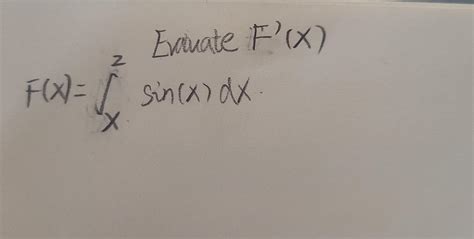 Evaluate F'(x)
F(x) = ∫_x^2 sin(x) dx.